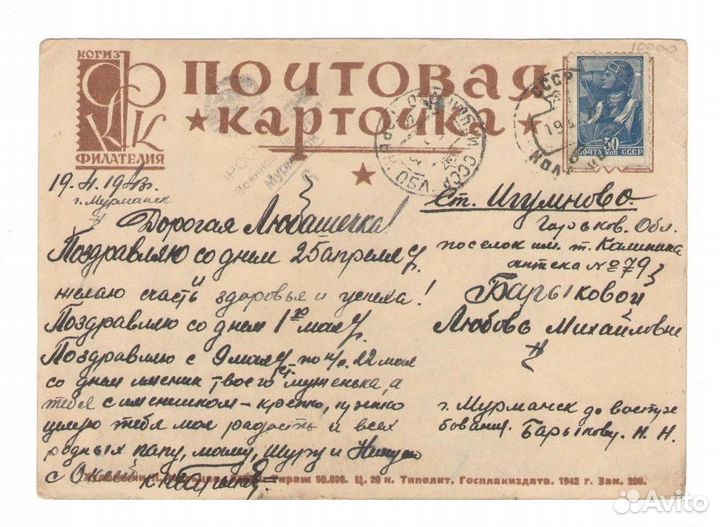 КОГИЗ
ФИЛАТЕЛИЯ
ПОЧТОВАЯ
★ КАРТОЧКА ★
ПОЧТА 30 КОП СССР
СССР
Мурманск
г. Мурманск
Дорогая Любашечка!
Поздравляю со днем 25 апреля
и
желаю счастья здоровья и успеха!
Поздравляю со днем 1го мая
Поздравляю с 9 мая по 22 мая
со днем имении твоего муженька, а
тебя с имениником - крепко,
целую тебя моя радость и всех
родных папу, маму, Шуру и
Ст. Игумново.
Горьков. Обл.
поселок им. т. Калинина
аптека № 79
Барыковой
Любовь Михайловне
г. Мурманск до востре
бования. Барыкову. Н. Н.
Тираж 50.000. Ц. 20 к. Типолит. Госпланиздата. 1942 г. Зак. 299.
Avito